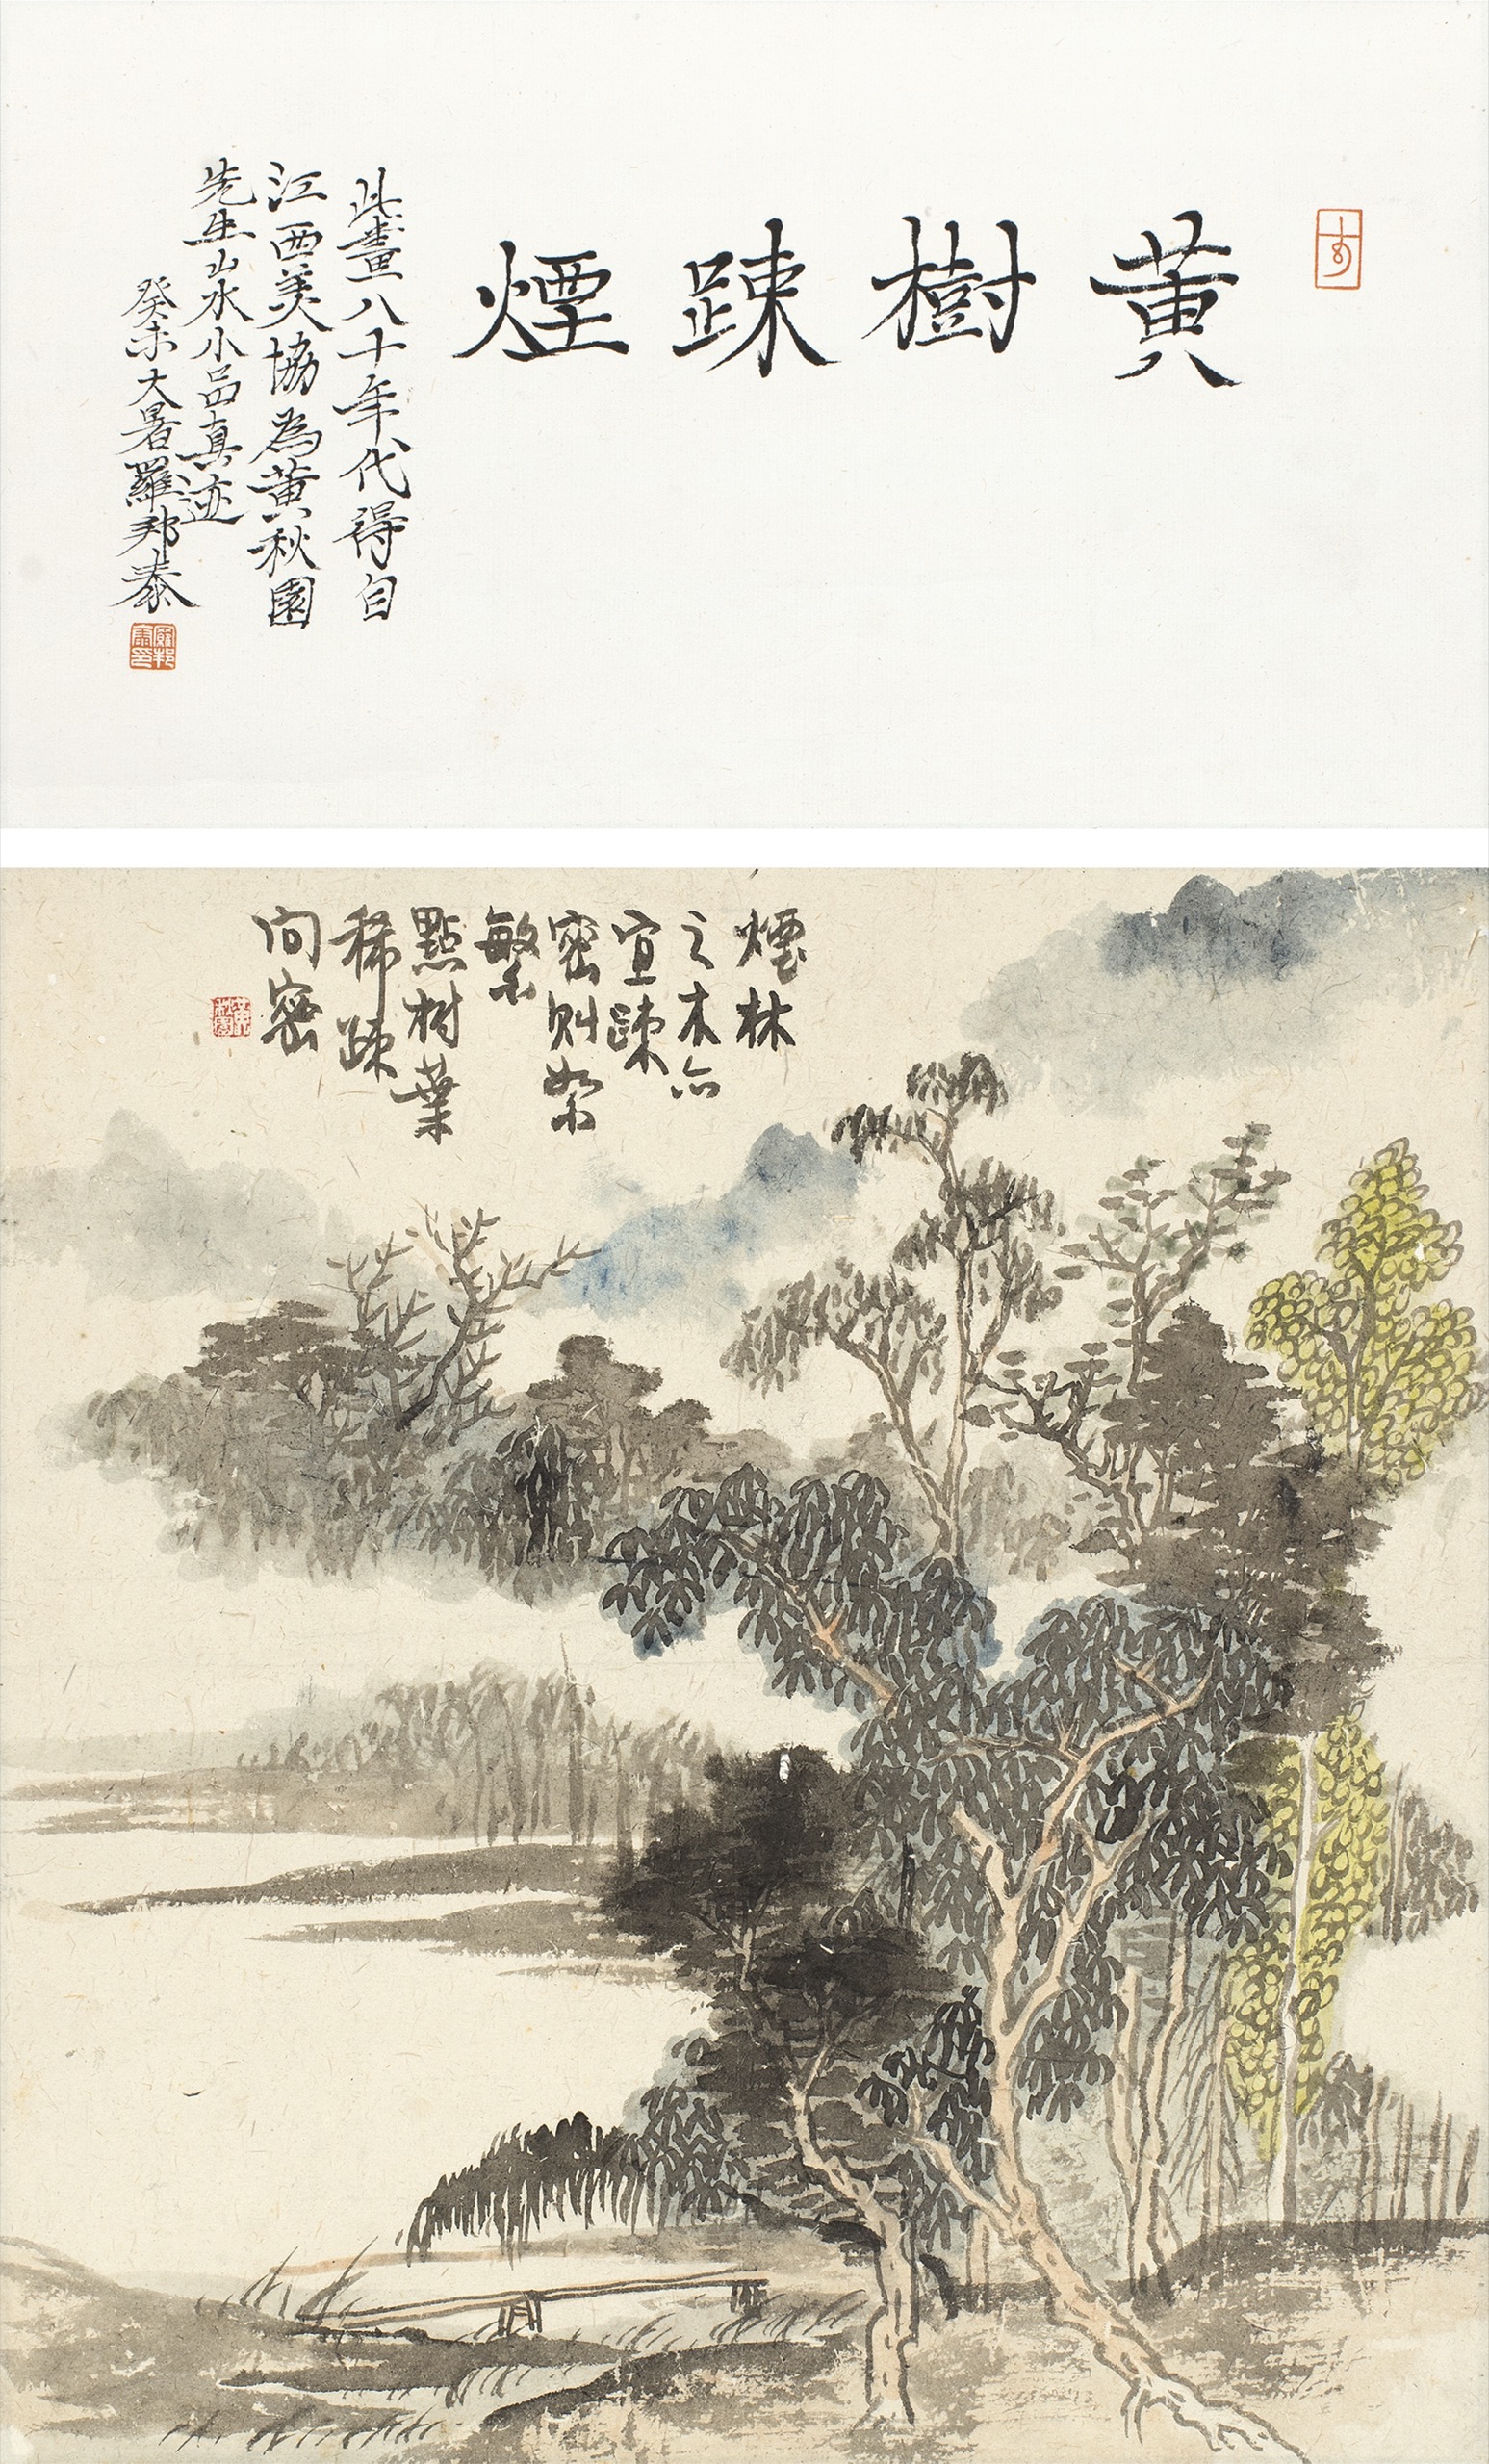 黄樹踈煙
此畫八十年代得自
江西美協為黄秋園
先生山水小品真迹
癸未大暑羅邦泰
煙林
之木亦
宜踈
密則絮
繁
點树葉
稀踈
間密